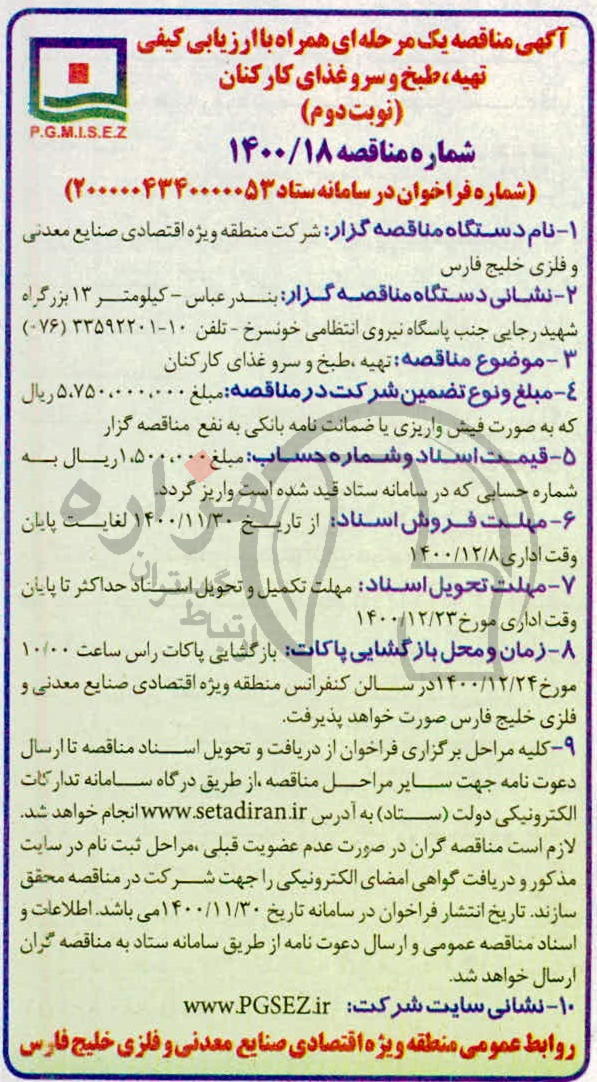 آگهی مناقصه یک مرحله ای همراه با ارزیابی کیفی
تهیه، طبخ و سرو غذای کارکنان
(نوبت دوم)
P.G.M.I.S.E.Z
شماره مناقصه ۱۴۰۰/۱۸
(شماره فراخوان در سامانه ستاد ۲۰۰۰۰۰۴۳۴۰۰۰۰۰۵۳)
۱-نام دستگاه مناقصه گزار: شرکت منطقه ویژه اقتصادی صنایع معدنی
و فلزی خلیج فارس
۲-نشانی دستگاه مناقصه گزار: بندر عباس - کیلومتر ۱۳ بزرگراه
شهید رجایی جنب پاسگاه نیروی انتظامی خونسرخ - تلفن ۱۰-۳۳۵۹۲۲۰۱ (۰۷۶)
۳ -موضوع مناقصه: تهیه ،طبخ و سرو غذای کارکنان
۴-مبلغ ونوع تضمین شرکت در مناقصه: مبلغ ۵،۷۵۰،۰۰۰،۰۰۰ ریال
که به صورت فیش واریزی یا ضمانت نامه بانکی به نفع مناقصه گزار
۵-قیمت اسناد و شماره حساب: مبلغ ۱،۵۰۰،۰۰۰ریال به
شماره حسابی که در سامانه ستاد قید شده است واریز گردد.
۶-مهلت فروش اسناد: از تاریخ ۱۴۰۰/۱۱/۳۰ لغایت پایان
وقت اداری ۱۴۰۰/۱۲/۸
۷-مهلت تحویل اسناد: مهلت تکمیل و تحویل اسناد حداکثر تا پایان
وقت اداری مورخ ۱۴۰۰/۱۲/۲۳
۸-زمان و محل بازگشایی پاکات: بازگشایی پاکات راس ساعت ۱۰/۰۰
مورخ ۱۴۰۰/۱۲/۲۴در سالن کنفرانس منطقه ویژه اقتصادی صنایع معدنی و
فلزی خلیج فارس صورت خواهد پذیرفت.
۹-کلیه مراحل برگزاری فراخوان از دریافت و تحویل اسناد مناقصه تا ارسال
دعوت نامه جهت سایر مراحل مناقصه ،از طریق درگاه سامانه تدارکات
الکترونیکی دولت (ستاد) به آدرس www.setadiran.ir انجام خواهد شد.
لازم است مناقصه گران در صورت عدم عضویت قبلی ،مراحل ثبت نام در سایت
مذکور و دریافت گواهی امضای الکترونیکی را جهت شرکت در مناقصه محقق
سازند. تاریخ انتشار فراخوان در سامانه تاریخ ۱۴۰۰/۱۱/۳۰می باشد. اطلاعات و
اسناد مناقصه عمومی و ارسال دعوت نامه از طریق سامانه ستاد به مناقصه گران
ارسال خواهد شد.
۱۰-نشانی سایت شرکت: www.PGSEZ.ir
روابط عمومی منطقه ویژه اقتصادی صنایع معدنی و فلزی خلیج فارس
هزاره
گستران
ارتباط